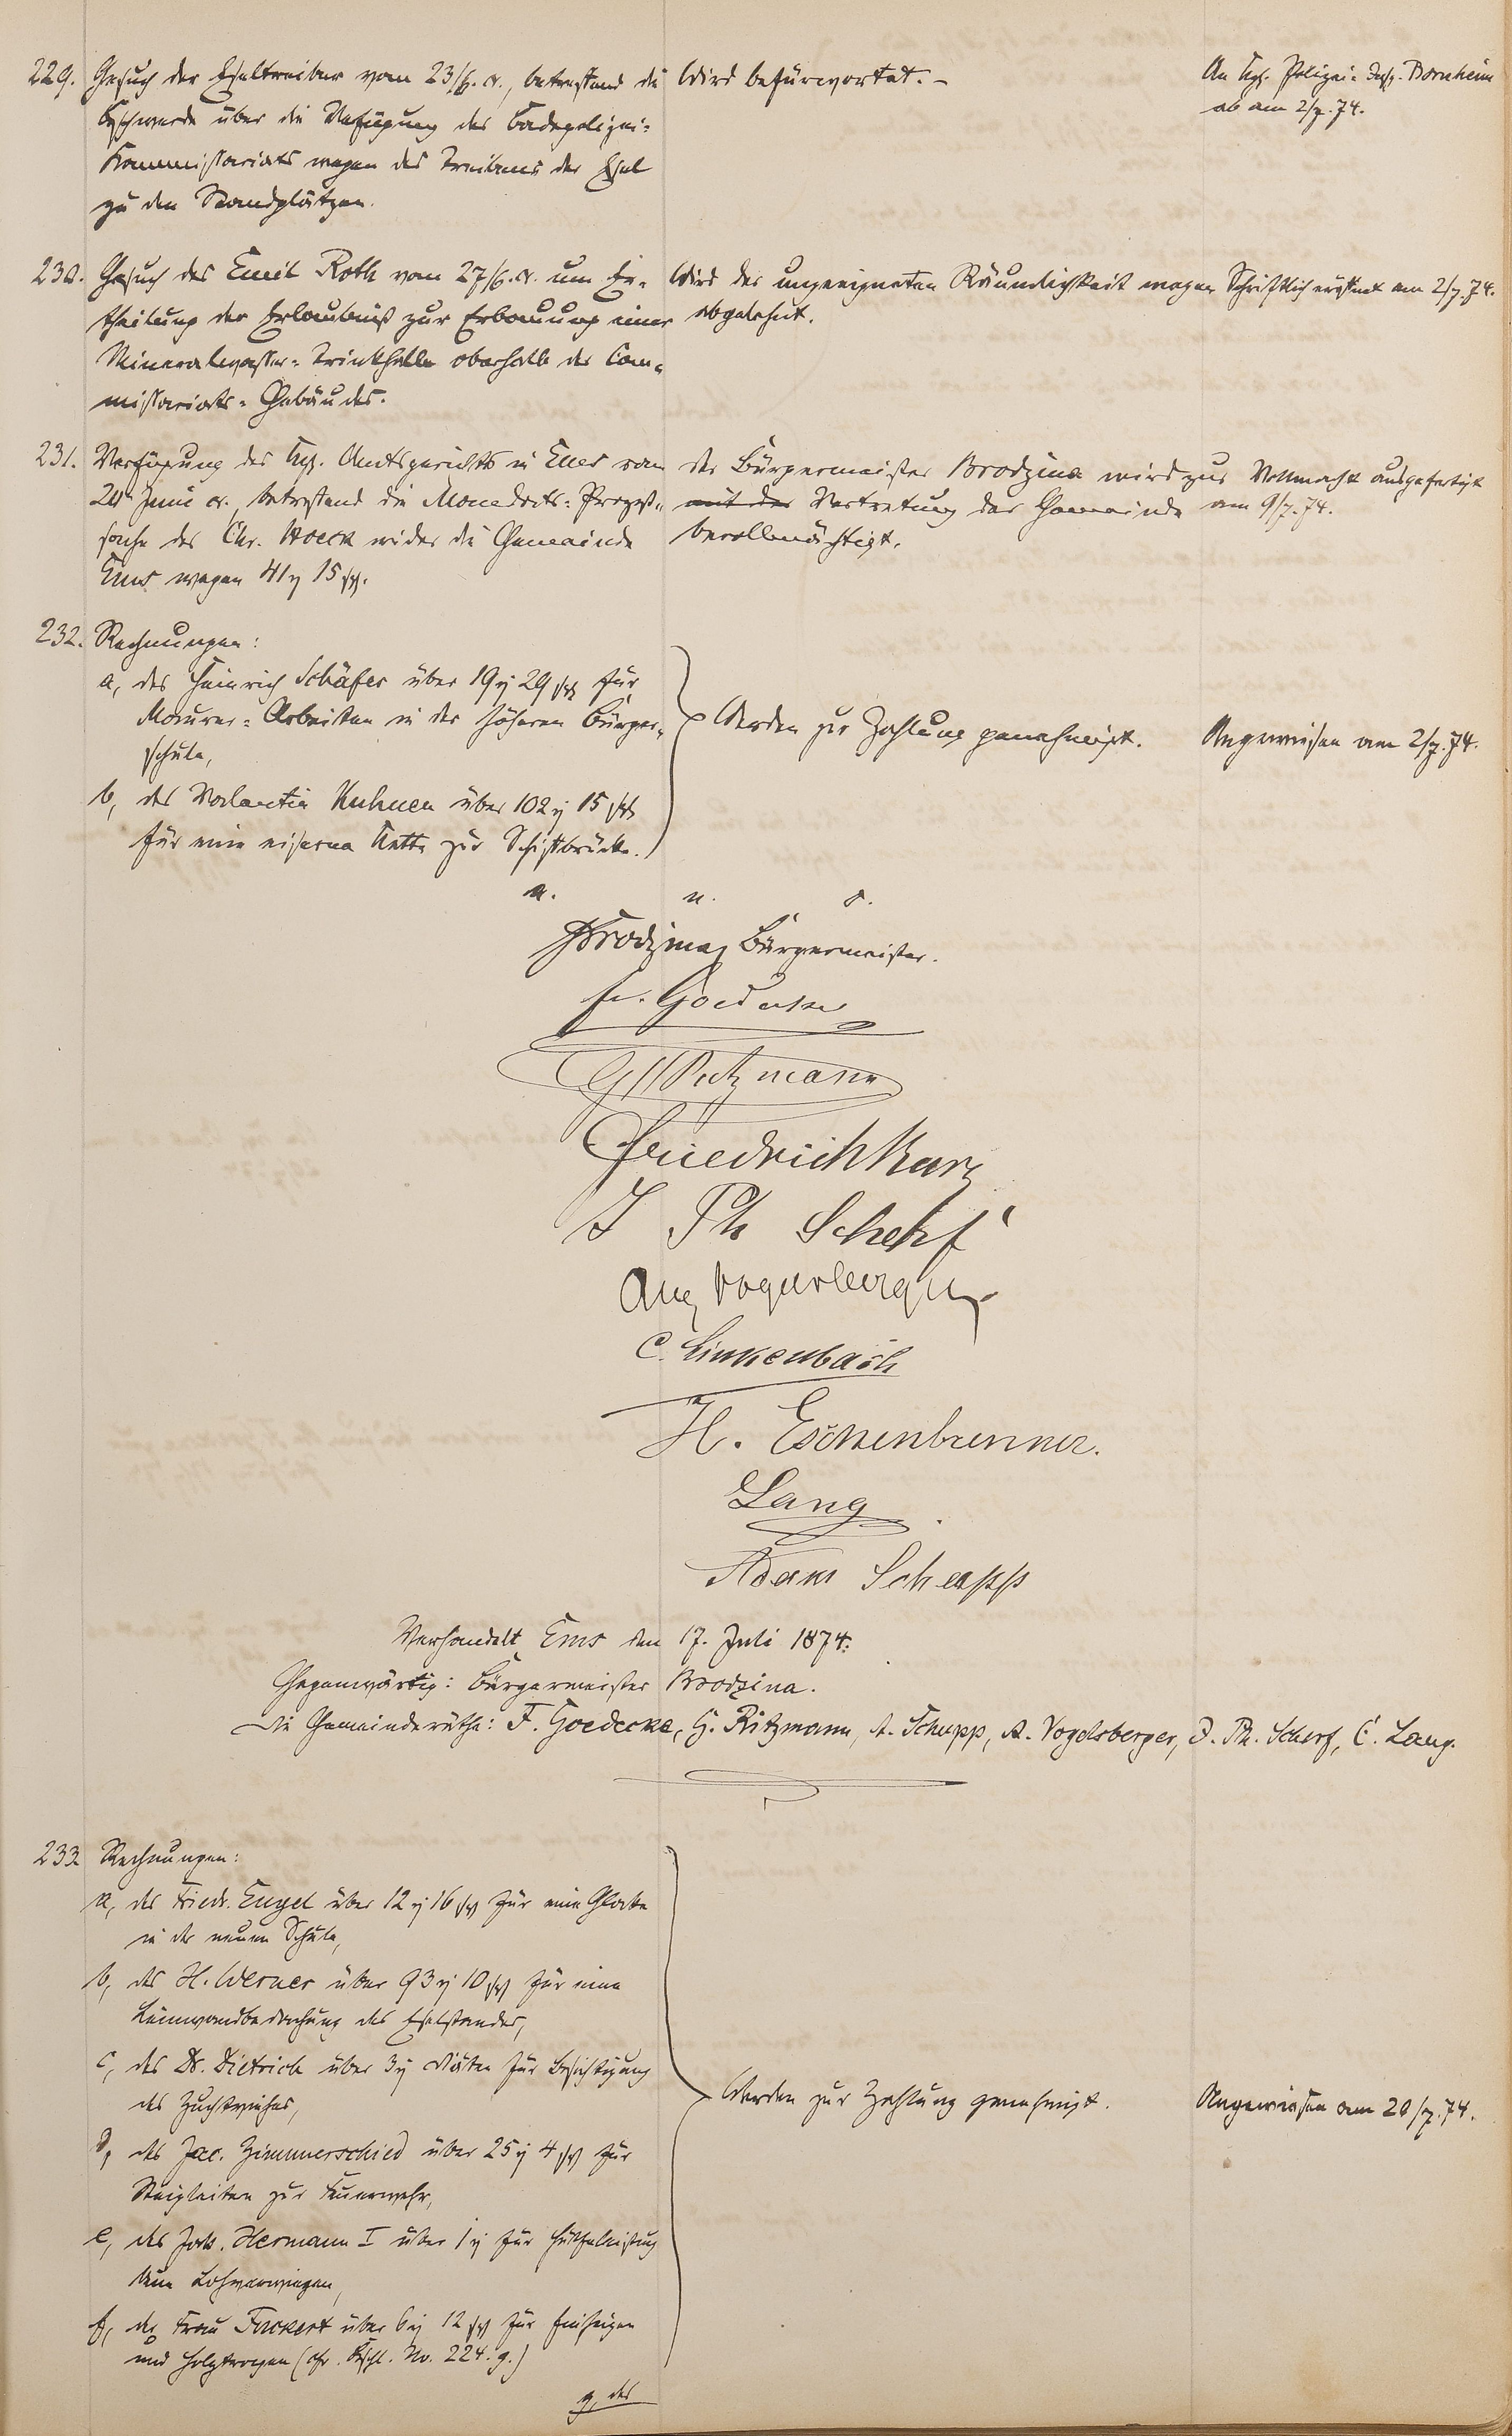 229. Gesuch der Eseltreiber vom 23/6. cr., betreffend die
Beschwerde über die Verfügung des Badepolizei-
Kommissariats wegen des Treibens der Esel
zu den Standplätzen.
Wird befürwortet. –
An Kgl. Polizei-Insp. Bornheim
ab am 2/7. 74.
230. Gesuch des Emil Roth vom 27/6. cr. um Er-
theilung der Erlaubniß zur Erbauung einer
Mineralwasser-Trinkhalle oberhalb des Com-
missariats-Gebäudes.
Wird der ungeeigneten Räumlichkeit wegen
abgelehnt.
Schriftlich eröffnet am 2/7. 74.
231. Verfügung des Kgl. Amtsgerichts in Ems vom
20. Juni cr., betreffend die Mandats-Prozeß-
sache des Chr. Hoeck wider die Gemeinde
Ems wegen 41 15 sgr.
der Bürgermeister Brodzina wird zur
mit der Vertretung der Gemeinde
bevollmächtigt.
Vollmacht ausgefertigt
am 9/7. 74.
232. Rechnungen:
a, des Heinrich Schäfer über 19 29 sgr für
Maurer-Arbeiten in der höheren Bürger-
schule,
b, des Valentin Kuhnen über 102 15 sgr
für eine eiserne Kette zur Schiffbrücke.
Werden zur Zahlung genehmigt.
Angewiesen am 2/7. 74.
a. u. s.
Brodzina, Bürgermeister.
Fr. Goedecke
G Ritzmann
Friedrich Karz
J Ph Scherf
Aug Vogelsberger
C. Linkenbach
H. Eschenbrenner.
Lang
Adam Schupp
Verhandelt Ems den 17. Juli 1874.
Gegenwärtig: Bürgermeister Brodzina.
Die Gemeinderäthe: F. Goedecke, G. Ritzmann, A. Schupp, A. Vogelsberger, J. Ph. Scherf, C. Lang.
233. Rechnungen:
a, des Friedr. Engel über 12 16 sgr für eine Glocke
in der neuen Schule,
b, des H. Werner über 93 10 sgr für eine
Leinwandbedachung des Eselstandes,
c, des Dr. Dietrich über 3 Diäten für Besichtigung
des Zuchtviehes,
d, des Jac. Zimmerschied über 25 4 sgr für
Steigleitern zur Feuerwehr,
e, des Joh. Hermann I über 1 für Hülfeleistung
beim Lohverwiegen,
f, der Frau Fackert über 6 12 sgr für Einheizen
und Holztragen (cfr. Beschl. No. 224. g.)
Werden zur Zahlung genehmigt.
Angewiesen am 20/7. 74.
g, des